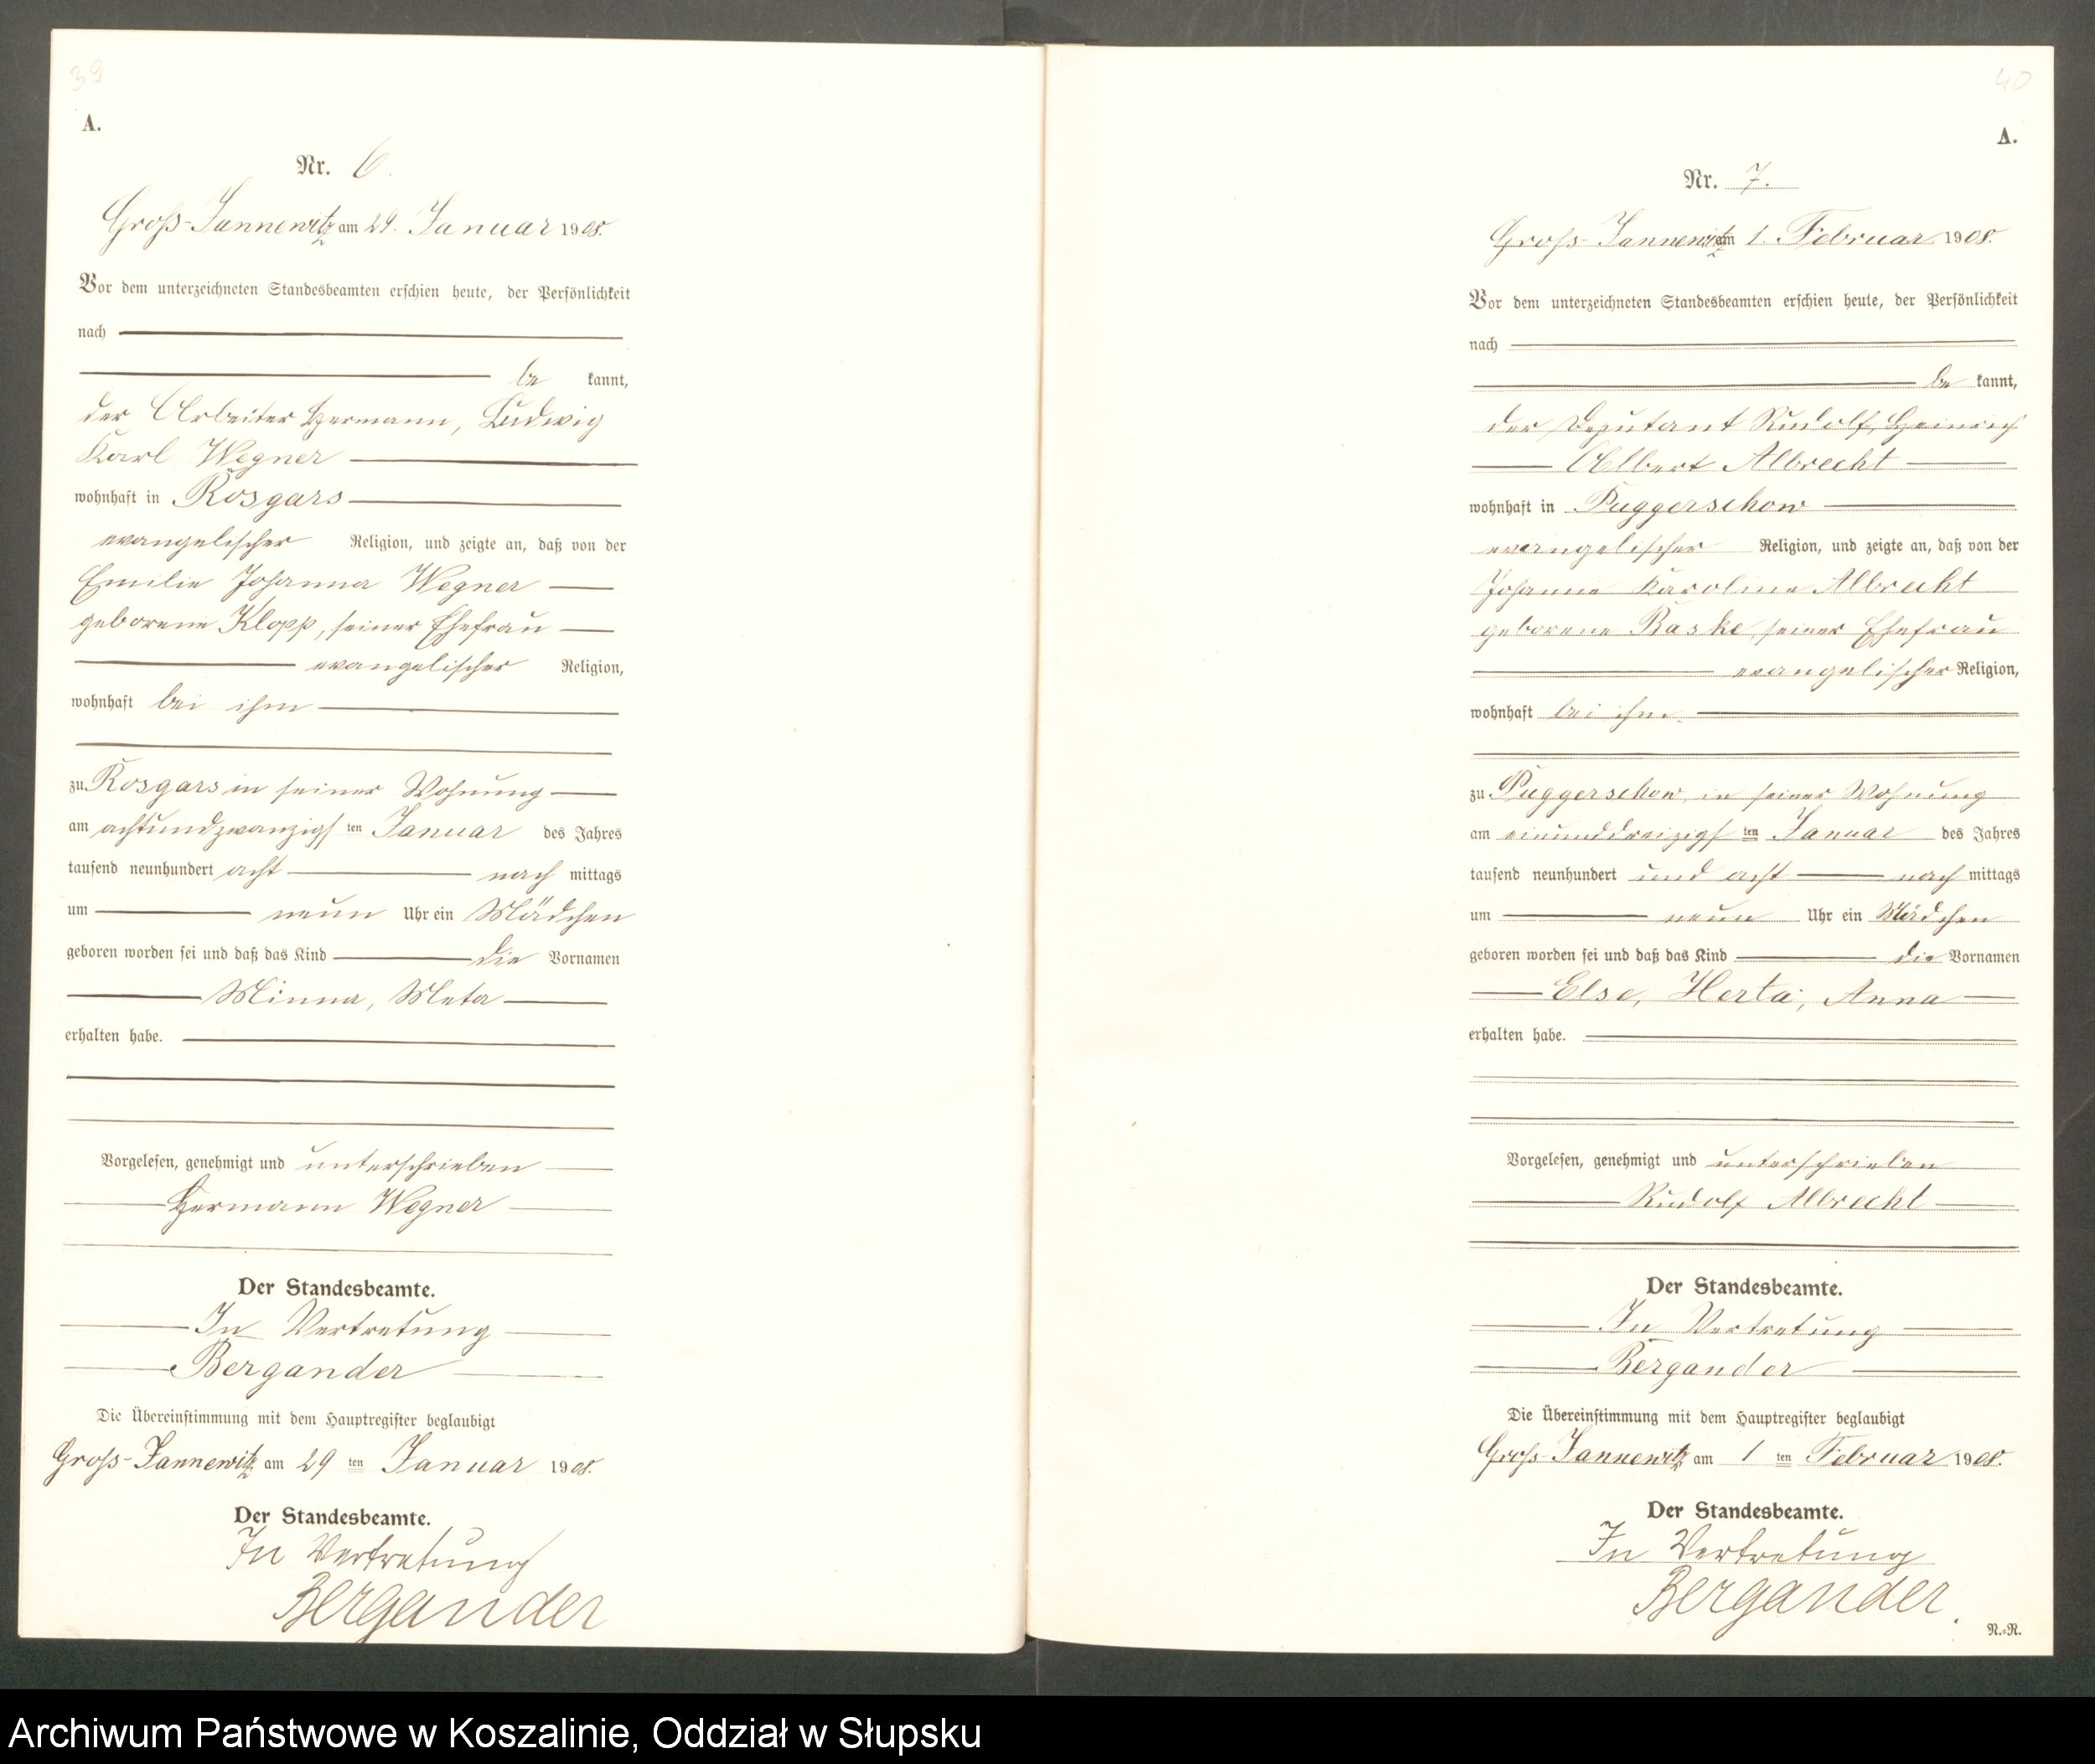 39
A.
Nr. 6.
Groß-Jannewitz am 29. Januar 1908.
Vor dem unterzeichneten Standesbeamten erschien heute, der Persönlichkeit
nach
be kannt,
der Arbeiter Hermann, Ludwig
Karl Wegner
wohnhaft in Rosgars
evangelischer Religion, und zeigte an, daß von der
Emilie Johanna Wegner
geborene Klopp, seiner Ehefrau
evangelischer Religion,
wohnhaft bei ihm
zu Rosgars in seiner Wohnung
am achtundzwanzigs ten Januar des Jahres
tausend neunhundert acht nach mittags
um neun Uhr ein Mädchen
geboren worden sei und daß das Kind die Vornamen
Minna, Meta
erhalten habe.
Vorgelesen, genehmigt und unterschrieben
Hermann Wegner
Der Standesbeamte.
In Vertretung
Bergander
Die Übereinstimmung mit dem Hauptregister beglaubigt
Groß-Jannewitz am 29 ten Januar 1908.
Der Standesbeamte.
In Vertretung
Bergander
40
A.
Nr. 7.
Groß-Jannewitz am 1. Februar 1908.
Vor dem unterzeichneten Standesbeamten erschien heute, der Persönlichkeit
nach
be kannt,
der Deputant Rudolf, Heinrich
Albert Albrecht
wohnhaft in Puggerschow
evangelischer Religion, und zeigte an, daß von der
Johanne Karoline Albrecht
geborene Baske seiner Ehefrau
evangelischer Religion,
wohnhaft bei ihm
zu Puggerschow, in seiner Wohnung
am einunddreizigs ten Januar des Jahres
tausend neunhundert und acht nach mittags
um neun Uhr ein Mädchen
geboren worden sei und daß das Kind die Vornamen
Else, Herta, Anna
erhalten habe.
Vorgelesen, genehmigt und unterschrieben
Rudolf Albrecht
Der Standesbeamte.
In Vertretung
Bergander
Die Übereinstimmung mit dem Hauptregister beglaubigt
Groß-Jannewitz am 1 ten Februar 1908.
Der Standesbeamte.
In Vertretung
Bergander.
N.=R.
Archiwum Państwowe w Koszalinie, Oddział w Słupsku